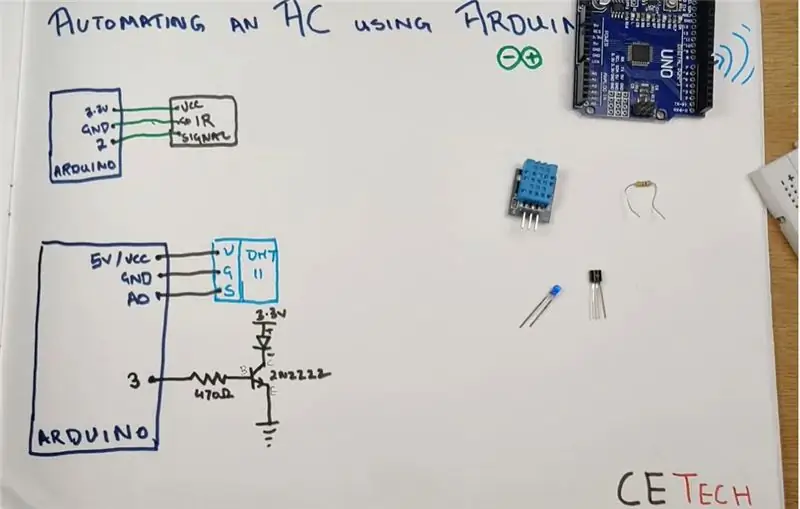 AUTOMATING AN AC USING ARDUIN
UNO
3.3V
GND
2
ARDUINO
VCC
IR
SIGNAL
5V/VCC
GND
A0
3
ARDUINO
V
G
S
DHT
11
3.3V
+
-
C
B
E
2N2222
470Ω
CE TECH